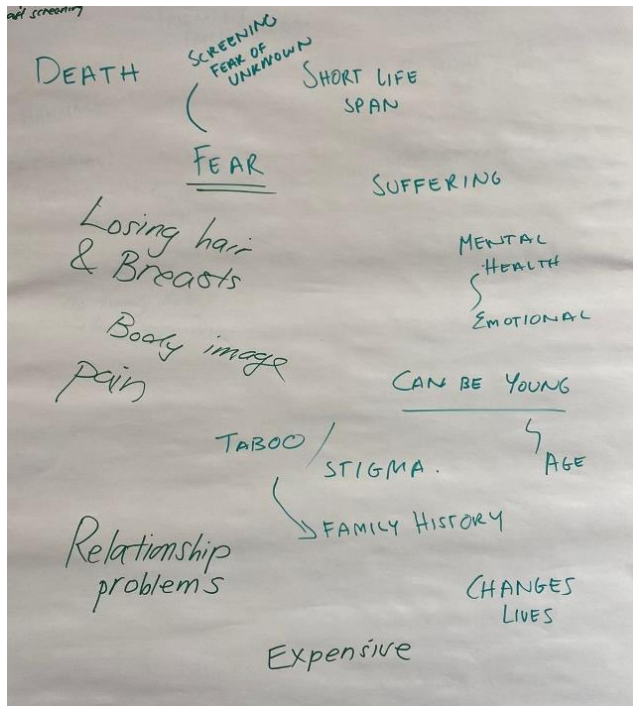 screening
DEATH
SCREENING
FEAR OF
UNKNOWN
SHORT LIFE
SPAN
FEAR
SUFFERING
Losing hair
& Breasts
MENTAL
HEALTH
EMOTIONAL
Body image
Pain
CAN BE YOUNG
AGE
TABOO /
STIGMA.
FAMILY HISTORY
Relationship
problems
CHANGES
LIVES
Expensive